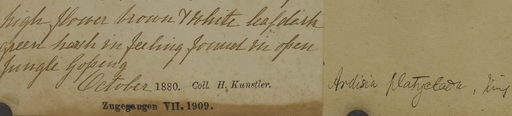 high flower brown & white leaf dark
green harsh in feeling found in open
jungle Goping
October 1880. Coll. H. Kunstler.
Zugegangen VII. 1909.
Ardisia platyclada, King